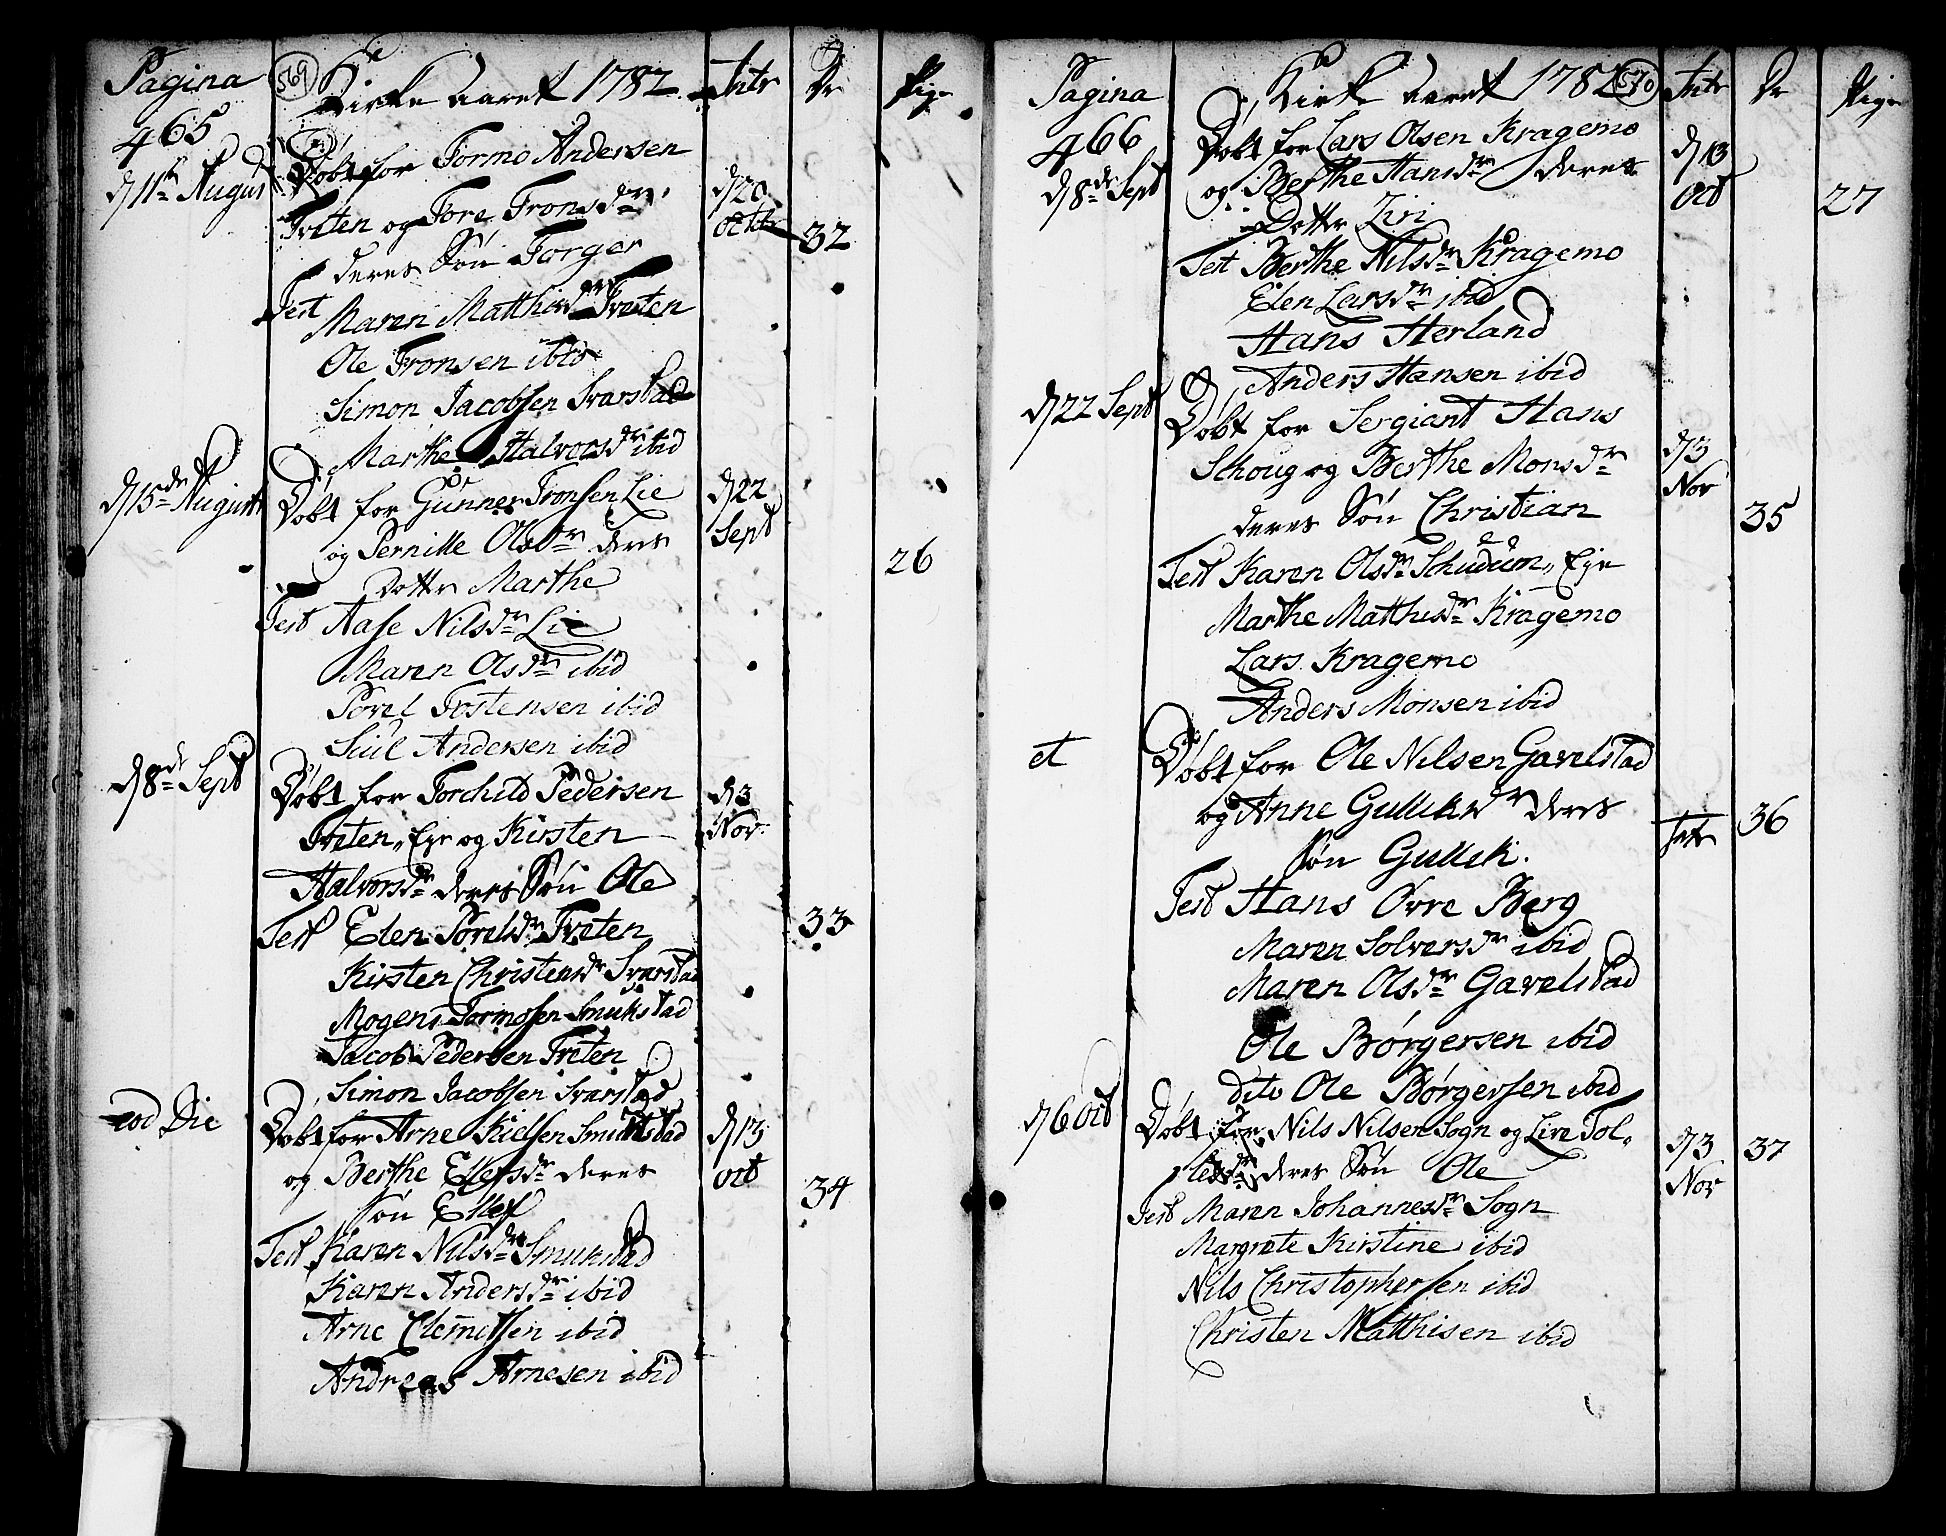 Pagina 465
569
Kirke Aaret 1782
Intr
Dr
Pige
d 11te August
Döbt for Tormo Andersen
Treten og Tore Tronsdr
deres Sön Torger
d 20 octbr
32
Test Maren Matthisdr Treten
Ole Tronsen ibid
Simon Jacobsen Svarstad
Marthe Halvorsdr ibid
d 15de August
Döbt for Gunner Tronsen Lie
og Pernille Olsdr deres
Dotter Marthe
d 22 Sept
26
Test Aase Nilsdr Lie
Maren Olsdr ibid
Povel Tostensen ibid
Juul Andersen ibid
d 8de Sept
Döbt for Torchild Pedersen
Treten, Eje og Kirsten
Halvorsdr deres Sön Ole
d 3 Nov
33
Test Elen Povelsdr Treten
Kirsten Christensdr Svarstad
Mogens Tormosen Smukstad
Jacob Pedersen Treten
Simon Jacobsen Svarstad
eod Die
Döbt for Arne Kielsen Smukstad
og Berthe Ellefsdr deres
Sön Ellef
d 13 oct
34
Test Karen Nilsdr Smukstad
Karen Andersdr ibid
Arne Clemetsen ibid
Andreas Arnesen ibid
Pagina 466
Kirke Aaret 1782
570
Intr
Dr
Pige
d 8de Sept
Döbt for Lars Olsen Kragemo
og Berthe Hansdr deres
Dotter Ziri
d 13 Oct
27
Test Berthe Nilsdr Kragemo
Elen Larsdr ibid
Hans Herland
Anders Hansen ibid
d 22 Sept
Döbt for Sergiant Hans
Schoug og Berthe Monsdr
deres Sön Christian
d 3 Nov
35
Test Karen Olsdr Schudum, Eje
Marthe Matthisdr Kragemo
Lars Kragemo
Anders Monsen ibid
et
Döbt for Ole Nilsen Gavelstad
og Anne Gulliksdr deres
Sön Gullik.
Intr
36
Test Hans Övre Berg
Maren Solversdr ibid
Maren Olsdr Gavelstad
Ole Börgersen ibid
dito Ole Börgersen ibid
d 6 Oct
Döbt for Nils Nilsen Sogn og Live Tol-
lefsdr deres Sön Ole
d 3 Nov
37
Test Maren Johannesdr Sogn
Margrete Kirstine ibid
Nils Christophersen ibid
Christen Matthisen ibid